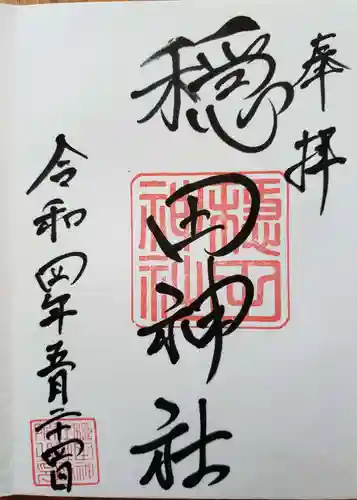 奉拝
穏田神社
令和四年五月二十四日
穏田
神社